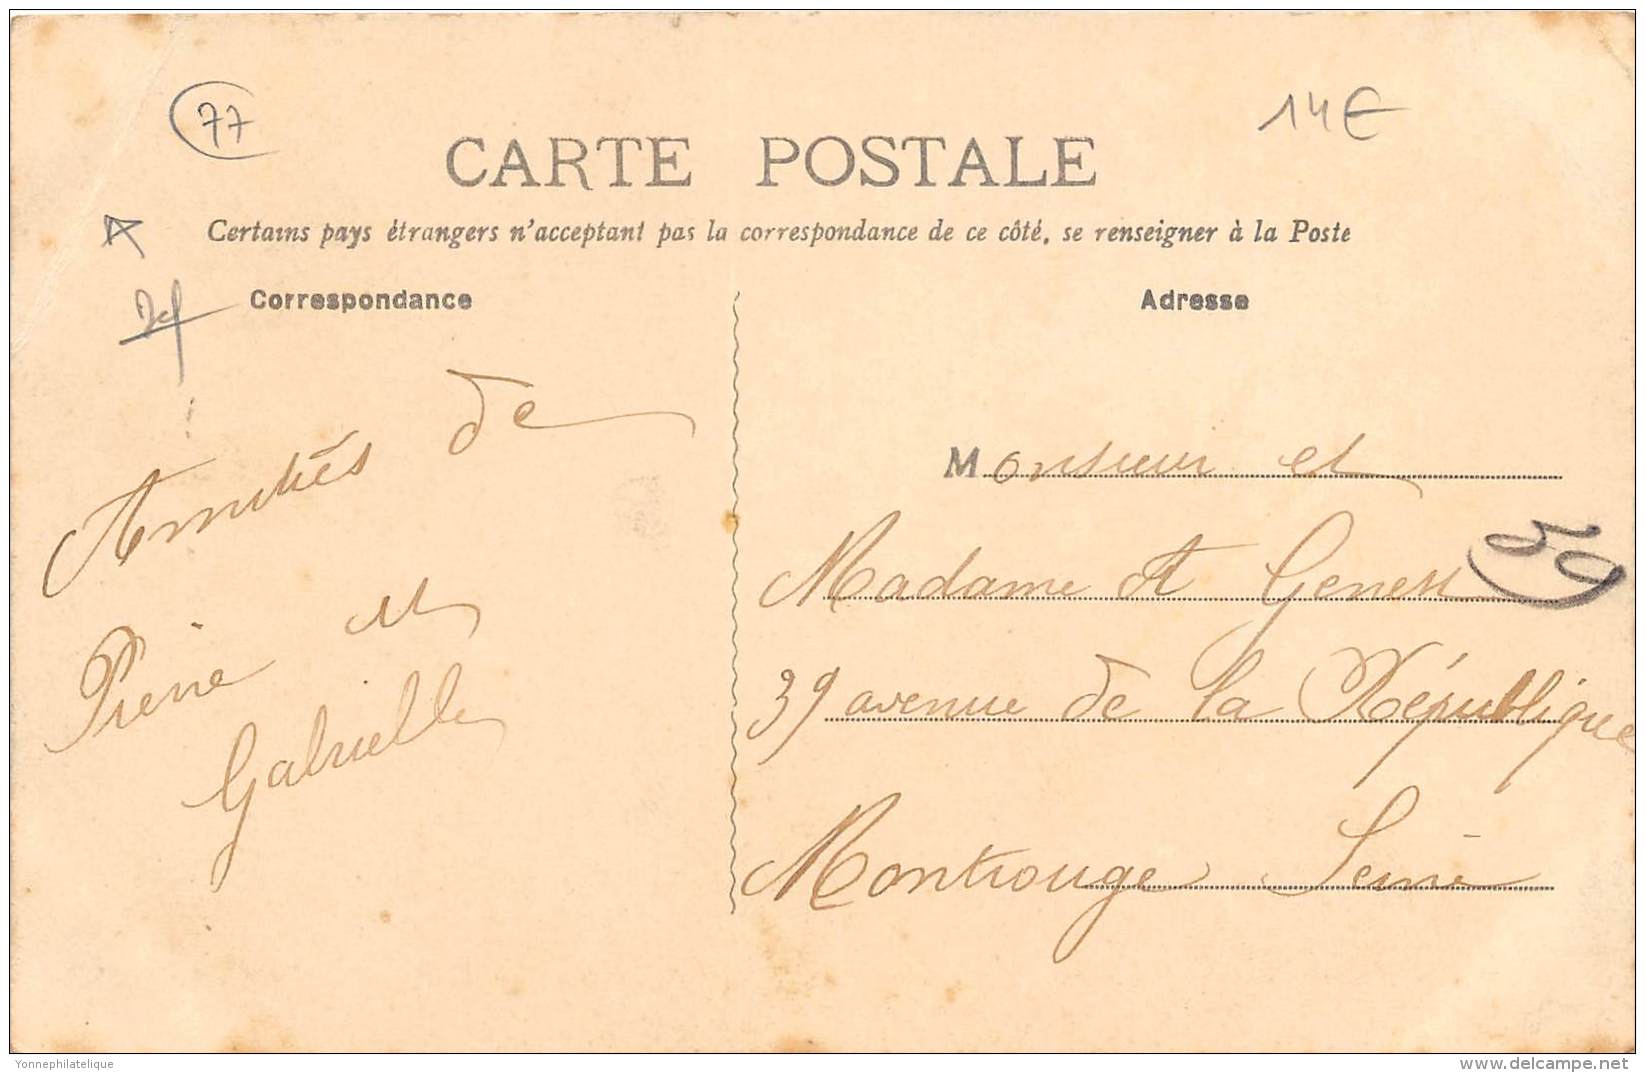 77
14€
CARTE POSTALE
Certains pays étrangers n'acceptant pas la correspondance de ce côté, se renseigner à la Poste
Correspondance
Adresse
Amitiés de
Pierre et
Gabrielle
Monsieur et
Madame A Genest
59
39 avenue de la République
Montrouge Seine
Yonnephilatelique
www.delcampe.net